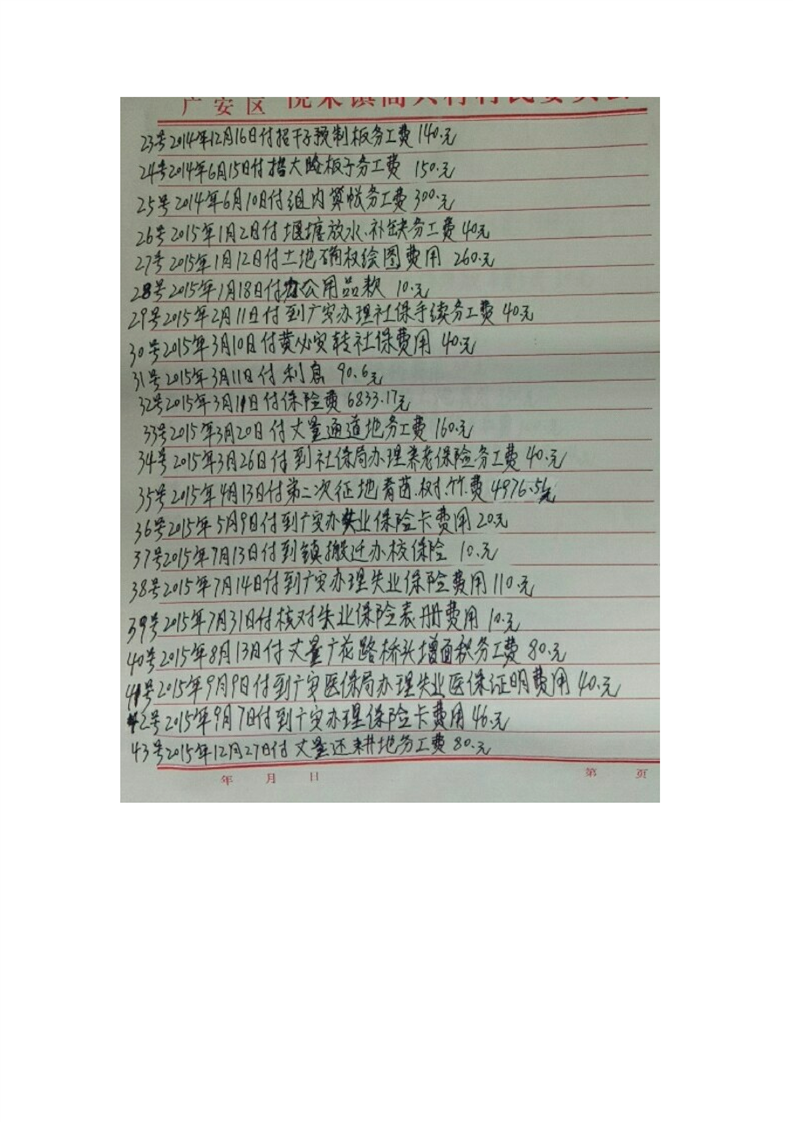 广安区 悦来镇高兴村村民委员会
23号2014年12月16日付招干子预制板务工费140.元
24号2014年6月15日付 大 板子务工费 150.元
25号2014年6月10日付组内算帐务工费300.元
26号2015年1月2日付堰塘放水、补缺务工费40元
27号2015年1月12日付土地确权绘图费用 260.元
28号2015年1月18日付办公用品款 10.元
29号2015年2月11日付到广安办理社保手续务工费40.元
30号2015年3月10日付黄必安转社保费用40.元
31号2015年3月11日付利息 90.6元
32号2015年3月11日付保险费6833.17元
33号2015年3月20日付丈量通道地务工费160.元
34号2015年3月26日付到社保局办理养老保险务工费40.元
35号2015年4月13日付第二次征地青苗.树.竹.费4976.5元
36号2015年5月9日付到广安办失业保险卡费用20元
37号2015年7月13日付到镇搬迁办核保险 10.元
38号2015年7月14日付到广安办理失业保险费用110.元
39号2015年7月31日付核对失业保险表册费用10.元
40号2015年8月13日付丈量广花路桥头增面积务工费80.元
41号2015年9月9日付到广安医保局办理失业医保证明费用40.元
42号2015年9月7日付到广安办理保险卡费用46.元
43号2015年12月27日付丈量还耕地务工费80.元
年 月 日 第 页